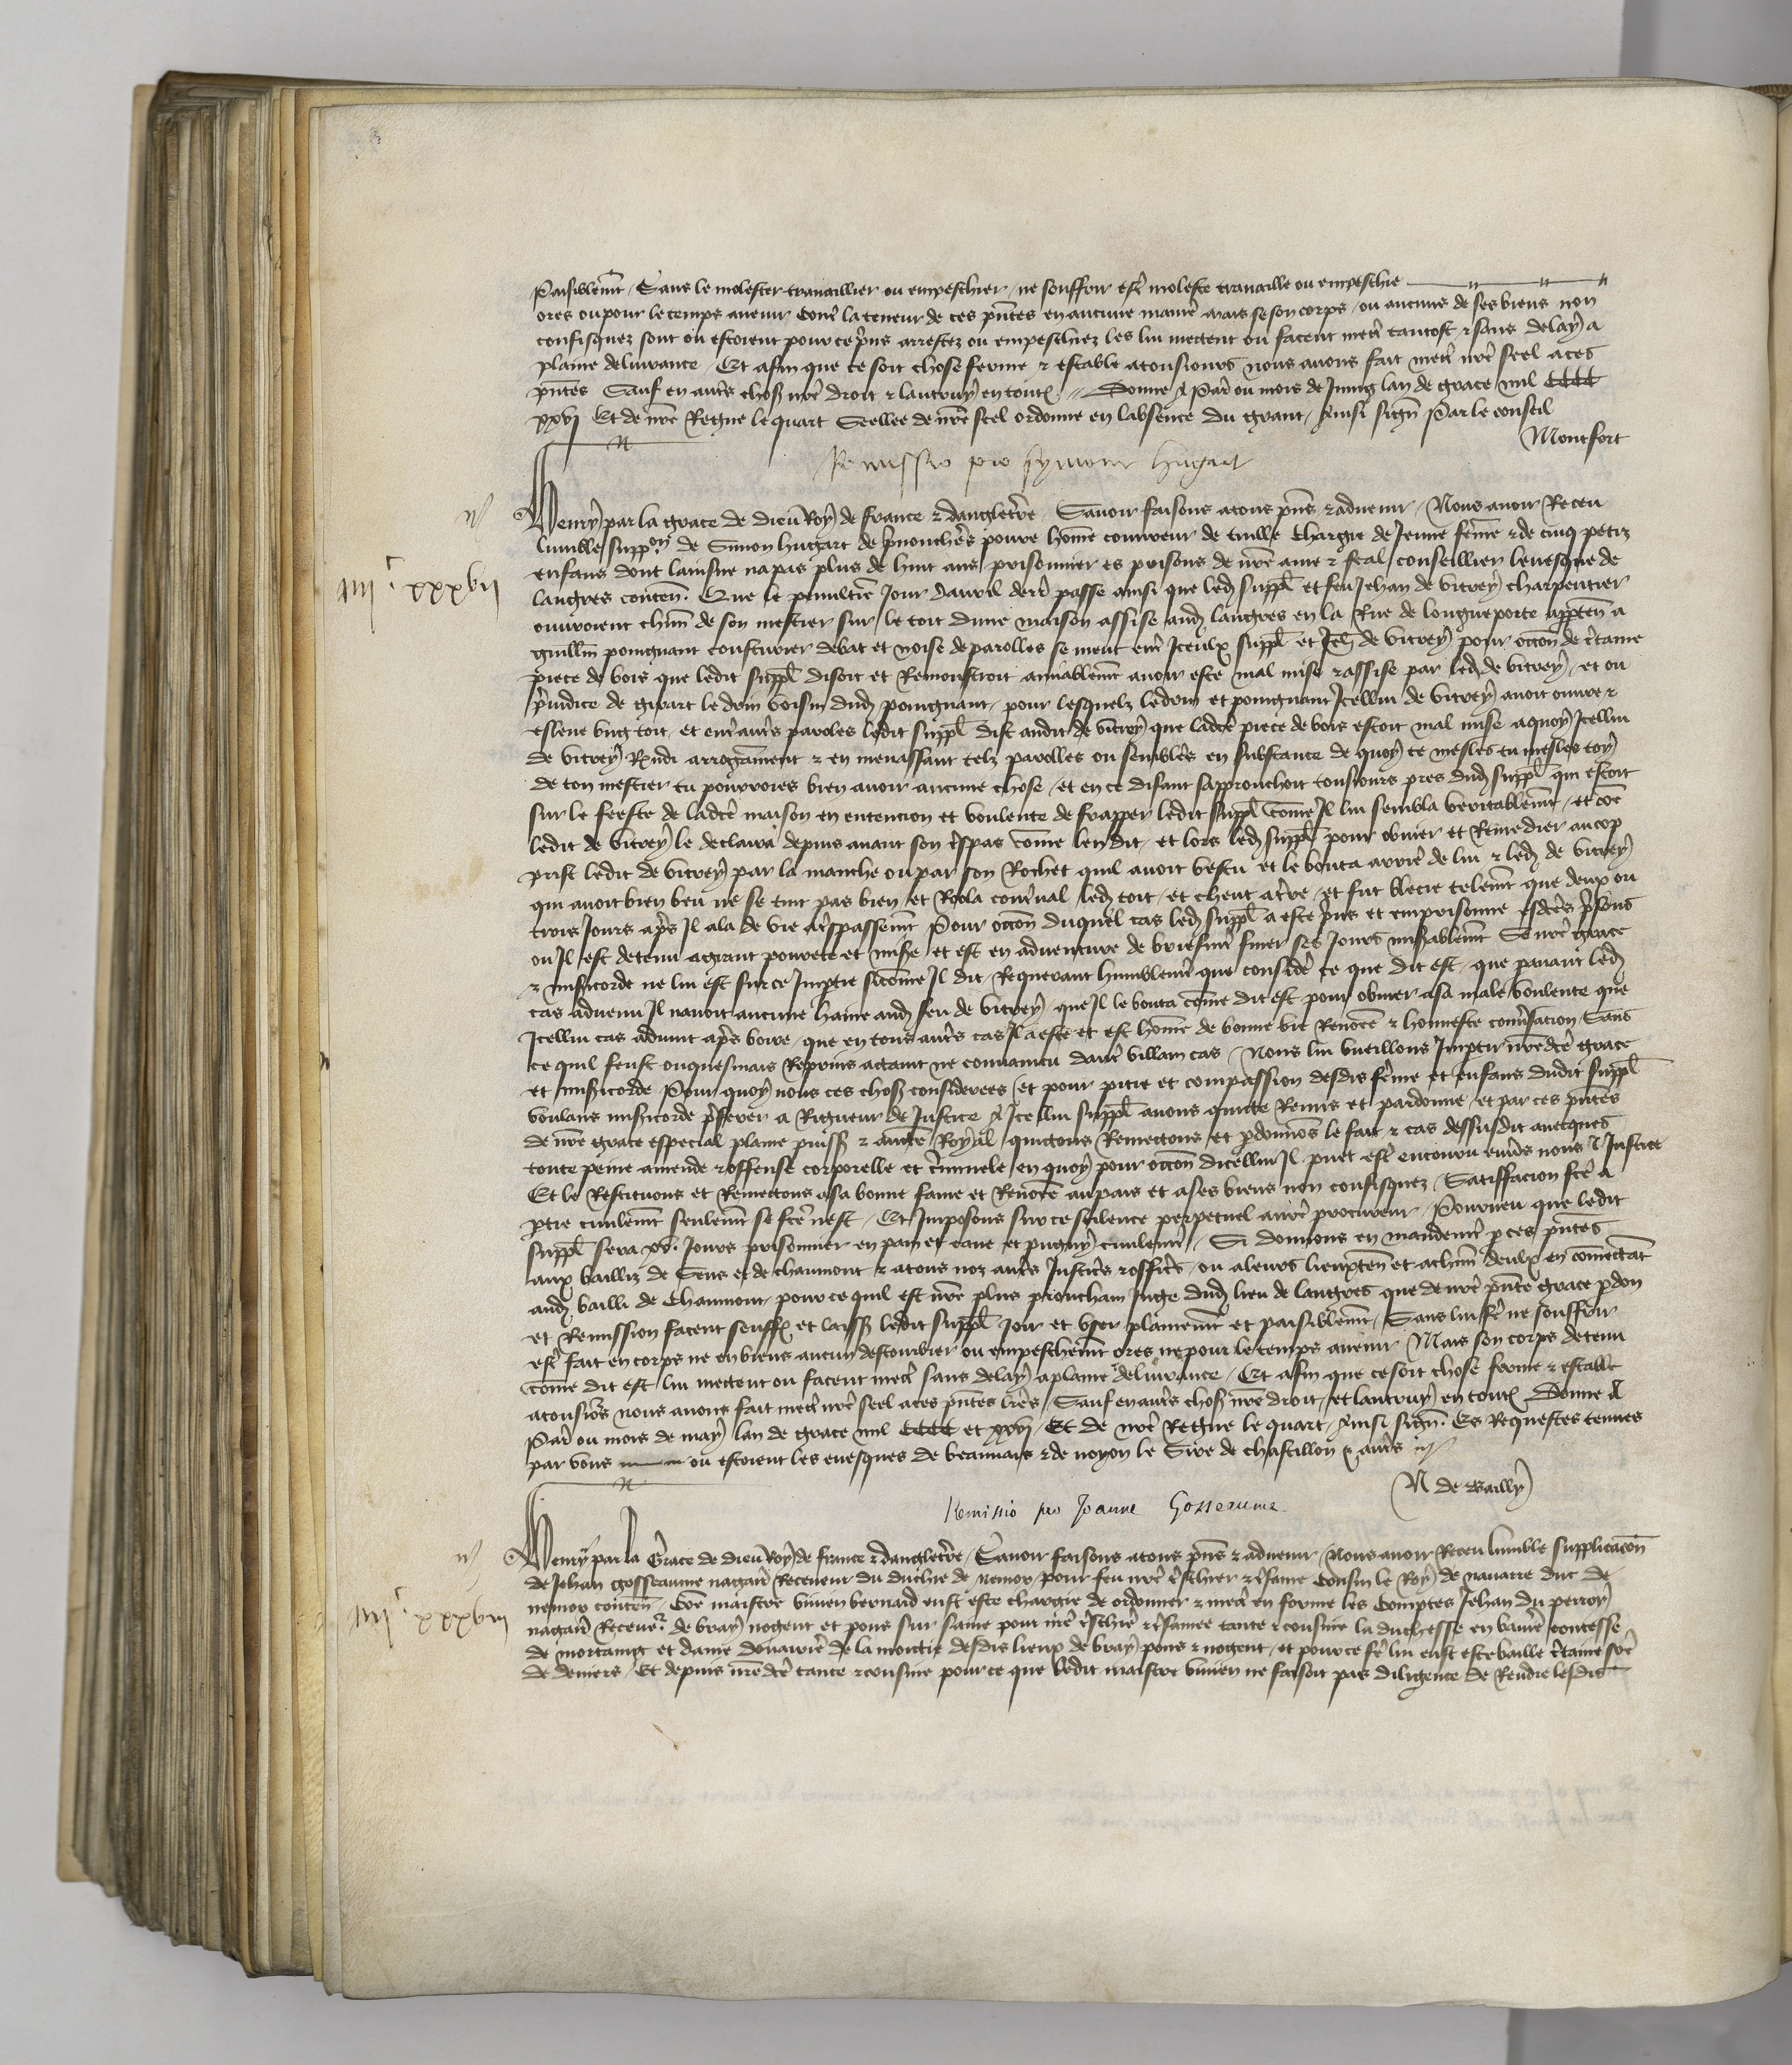 Paisiblemt Sans le molester travaillier ou empeschier ne souffrir estr moleste travaille ou empeschie
ores ou pour le temps avenir contr la teneur de ces pntes en aucune manier mais se son corps ou aucuns de ses biens non
confisquez sont ou estoient pour ce prins arrestez ou empeschiez les lui mectent ou facent mectr tantost & sans delay a
plaine delivrance Et afin que ce soit chose ferme & estable a tousiours nous avons fait mectr nre seel a ces
pntes Sauf en autrs chos nre droit & lautruy en toutes Donne a Paris ou mois de Juing lan de grace mil CCCC
xxvj Et de nre Regne le quart Seellee de nre seel ordonne en labsence du grant Ainsi sign Par le conseil
Montfort
Remissio pro Symone hugart
Henry par la grace de dieu Roy de france & dangleterre Savoir faisons a tous pns & advenir Nous avoir Receu
lumble suppon de Simon hugart de povre homme couvreur de tuille chargie de Jeune femme & de cinq petiz
enfans dont lainsne na pas plus de huit ans prisonnier es prisons de nre ame & feal conseillier levesque de
langres conten Que le penultieme Jour davril derr passe ainsi que led suppl et feu Jehan de vitrey charpentier
ouvroient chun de son mestier sur le toit dune maison assise aud langres en la Rue de longueporte apparten a
guillm poingnant cousturier debat et noise de parolles se meut entr Iceulx suppl et Jeh de vitrey pour occon de certaine
piece de bois que ledit suppl disoit et Remonstroit amiablemt avoir este mal mise & assise par led de vitrey et ou
preiudice de girart ledoin voisin dud poingnant pour lesquelz ledoin et poingnant Icellui de vitrey avoit ouvre &
esleve ung toit et entr autrs paroles ledit suppl dist audit de vitrey que ladce piece de bois estoit mal mise a quoy Icellui
de vitrey Rendi arrogamment & en menassant telz parolles ou semblees en substance de quoy te mesles tu mesles toy
de ton mestier tu pourroies bien avoir aucune chose et en ce disant sapprouchoit tousiours pres dud suppl qui estoit
sur le feeste de ladce maison en entencion et voulente de frapper ledit suppl comme Il lui sembla veritablemt et coe
ledit de vitrey le declaira depuis avant son trespas comme len dit et lors led suppl pour obvier et Remedier au cop
prist ledit de vitrey par la manche ou par son Rochet quil avoit vestu et le bouta arrier de lui & led de vitrey
qui avoit bien beu ne se tint pas bien et Rola contrval led toit et cheut a terre et fut blecie telemt que deux ou
trois Jours apres Il ala de vie a trespassemt Pour occon duquel cas led suppl a este prins et emprisonne esdces prisons
ou Il est detenu a grant povrete et misere et est en adventure de briefmt finer ses Jours miserablemt Se nre grace
& misericorde ne lui est sur ce Impartie sicomme Il dit Requerant humblemt que consider ce que dit est que paravant led
cas advenu Il navoit aucune haine aud feu de vitrey que Il le bouta comme dit est pour obvier a sa male voulente que
Icellui cas advint apres boire que en tous autrs cas Il a este et est homme de bonne vie Renomee & honneste conversacion Sans
ce quil feust onquesmais Reprins actaint ne convaincu dautr villain cas Nous lui vueillons Impartir nredce grace
et misericorde Pour quoy nous ces chos considerees et pour pitie et compassion desdis femme et enfans dudit suppl
voulans misericorde preferer a Rigueur de Justice A Icellui suppl avons quicte Remis et pardonne et par ces pntes
de nre grace especial plaine puiss & aucte Royal quictons Remectons et pardonnons le fait & cas dessusdit avecques
toute peine amende & offense corporelle et criminele en quoy pour occon dicellui Il puet estr encouru envers nous & Justice
Et le Restituons et Remectons a sa bonne fame et Renomee au pais et a ses biens non confisquez Satiffacion fce a
ptie civilemt seulemt se fce nest Et Imposons sur ce silence perpetuel a nre procureur Pourveu que ledit
suppl sera xv. Jours prisonnier en pain et eaue et pugny civilemt Si donnons en mandemt p ces pntes
aux bailliz de Sens et de chaumont & a tous noz autrs Justicrs & officrs ou a leurs lieuxten et a chun deulx en comectat
aud bailli de Chaumont pour ce quil est nre plus prouchain Juge dud lieu de langres que de nre pnte grace pdon
et Remission facent seuffr et laiss ledit suppl Joir et user plainemt et paisiblemt Sans lui fe ne souffrir
estr fait en corps ne en biens aucun destourbier ou empeschemt ores ne pour le temps avenir Mais son corps detenu
comme dit est lui mectent ou facent mectr sans delay a plaine delivrance Et afin que ce soit chose ferme & estable
a tousiours nous avons fait mectr nre seel a ces pntes lres Sauf en autrs chos nre droit et lautruy en toutes Donne A
Paris ou mois de may lan de grace mil CCCC et xxvj Et de nre Regne le quart Ainsi sign. Es Requestes tenues
par vous ou estoient les evesques de beauvais & de noyon le Sire de chastillon & autrs
N de Bailly
Remissio pro Joanne Gosseaume
Henry par la Grace de dieu Roy de france & dangleterre Savoir faisons a tous pns & advenir Nous avoir Receu lumble supplicacon
de Jehan gosseaume nagair Receveur du duchie de nemox pour feu nre treschier & tresame Cousin le Roy de navarre duc de
nemox conten Coe maistre vivien bernard eust este chargie de ordonner & mectr en forme les Comptes Jehan du perroy
nagair Receveur de bray nogent et pons sur saine pour nre treschier & tresamee tante & cousine la duchesse en bavier contesse
de mortaing et dame douairier de la moictie desdis lieux de bray pons & nogent et pour ce fe lui eust este baille certaine soe
de deniers Et depuis nredce tante & cousine pour ce que ledit maistre vivien ne faisoit pas diligence de Rendre lesdis